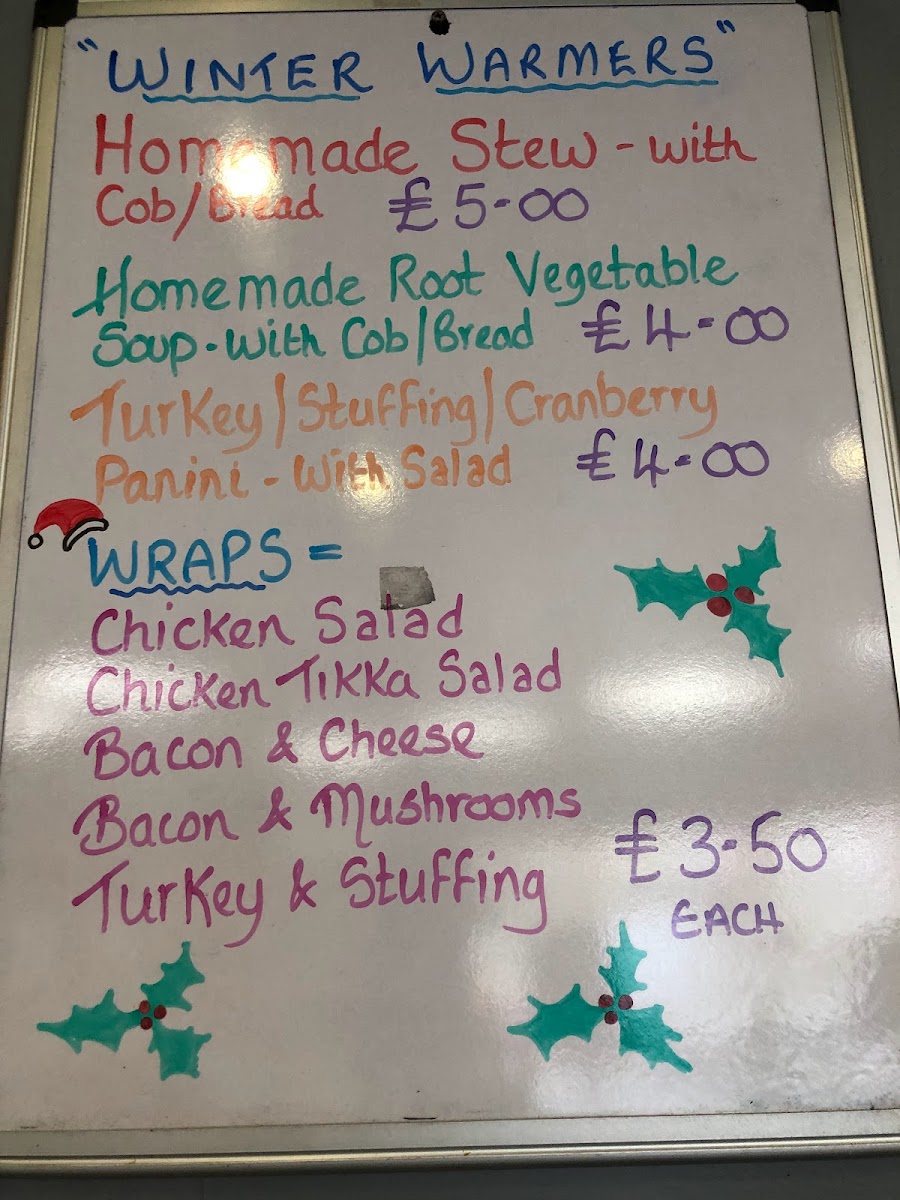 "WINTER WARMERS"
Homemade Stew - with
Cob/Bread £5-00
Homemade Root Vegetable
Soup-With Cob/Bread £4-00
Turkey/Stuffing/Cranberry
Panini - With Salad £4-00
WRAPS =
Chicken Salad
Chicken Tikka Salad
Bacon & Cheese
Bacon & Mushrooms
Turkey & Stuffing £3-50
EACH